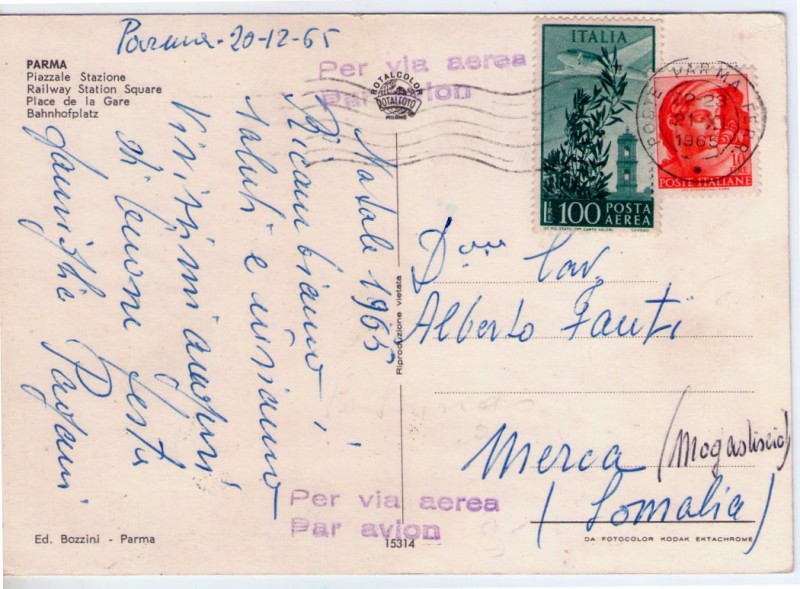 Parma - 20-12-65
PARMA
Piazzale Stazione
Railway Station Square
Place de la Gare
Bahnhofplatz
Per via aerea
Par avion
ROTALCOLOR
ROTALFOTO
MILANO
Natale 1965
Ricambiamo i
saluti e inviamo
Vivissimi auguri
di buone feste
Famiglia Pagani
ITALIA
L. 100 POSTA
AEREA
POSTE PARMA FERR.
1965
10
LIRE
POSTE ITALIANE
Riproduzione vietata
Cav.
Alberto Fanti
Merca (Mogadiscio)
(Somalia)
Per via aerea
Par avion
Ed. Bozzini - Parma
15314
DA FOTOCOLOR KODAK EKTACHROME